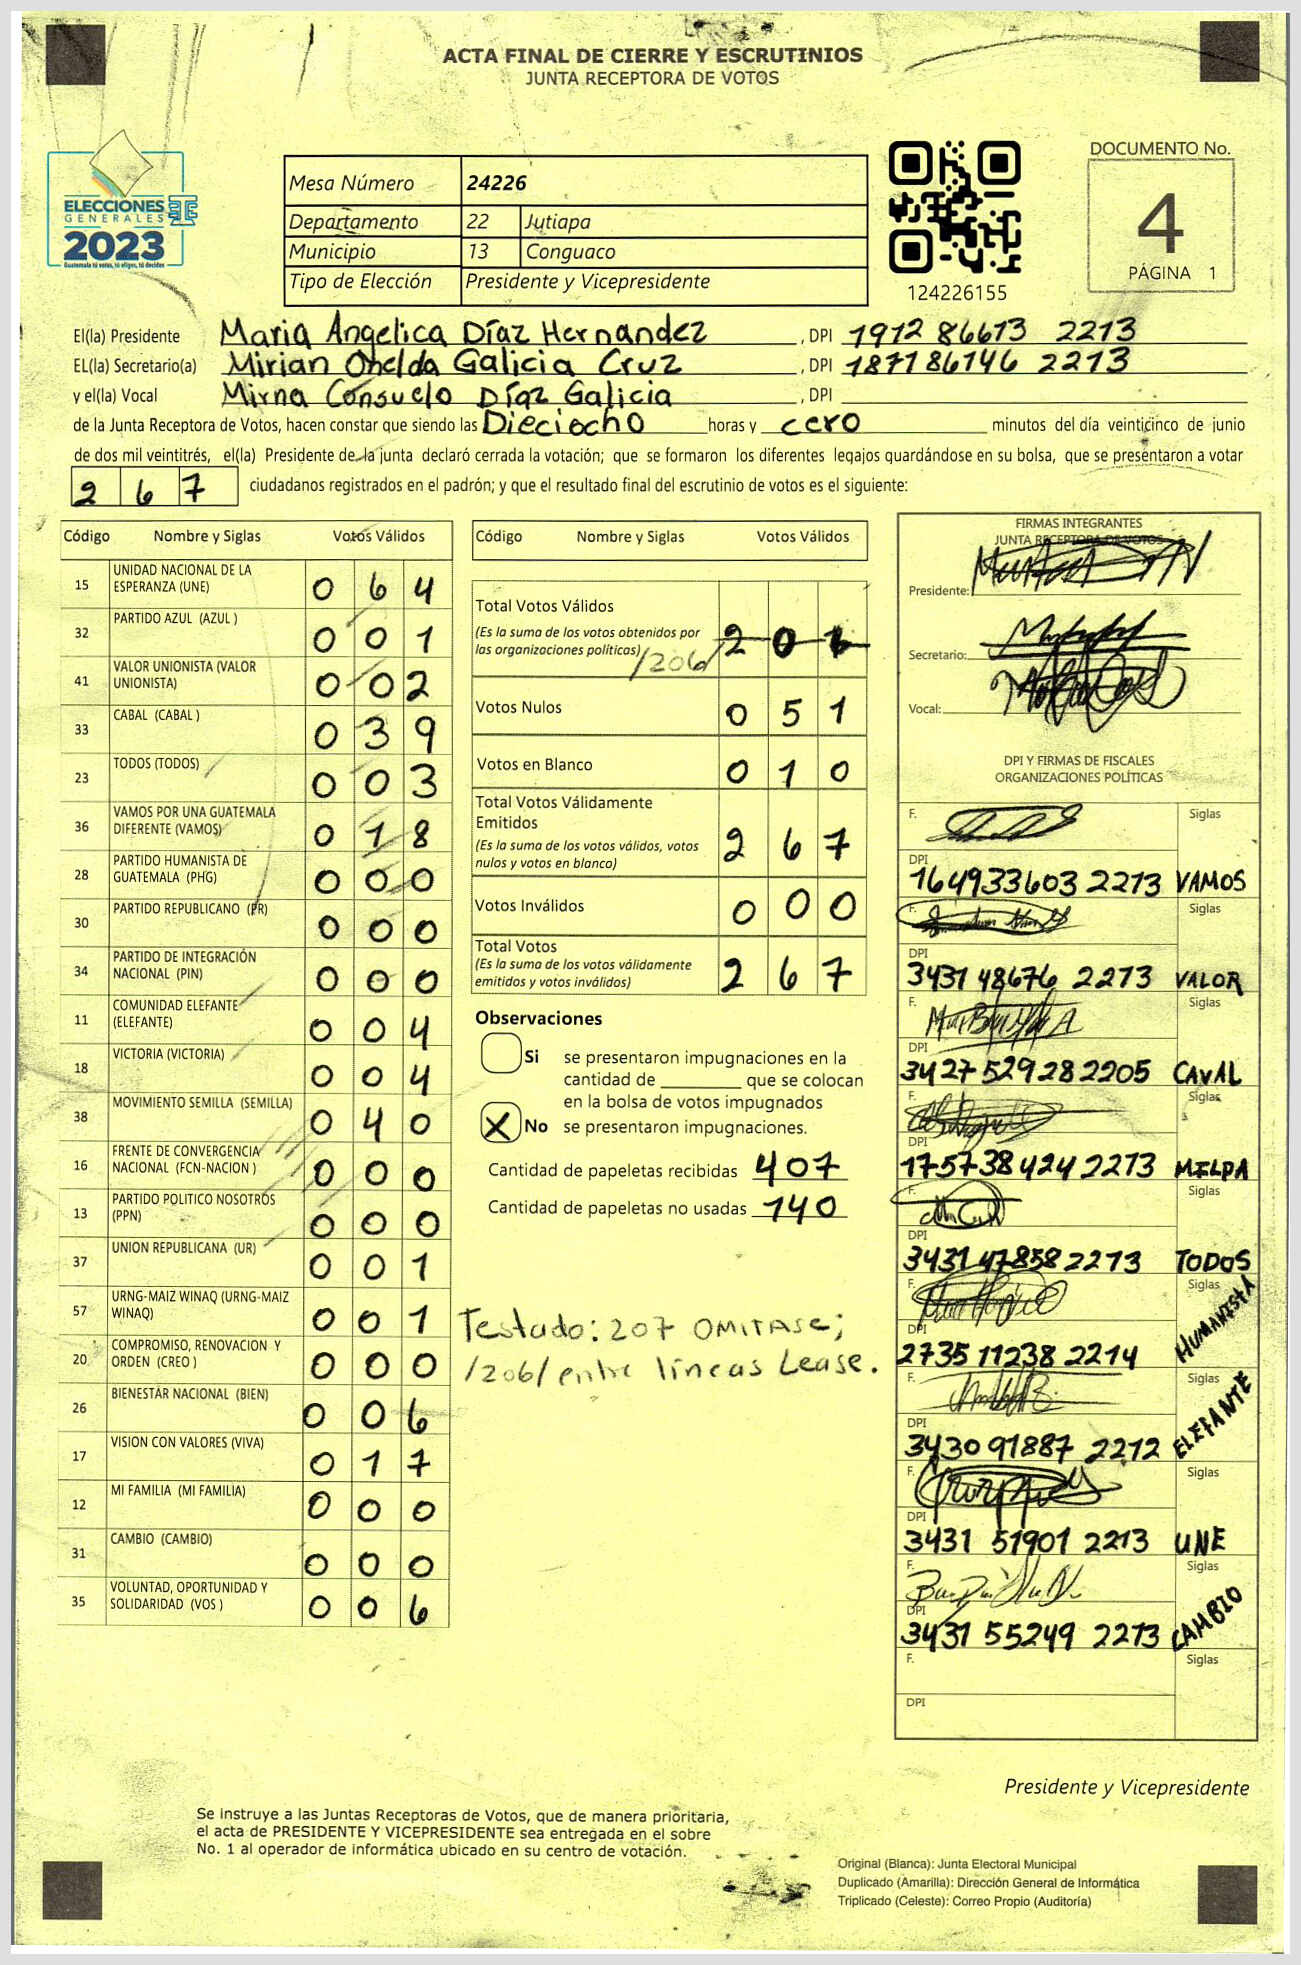 ACTA FINAL DE CIERRE Y ESCRUTINIOS
JUNTA RECEPTORA DE VOTOS
ELECCIONES
GENERALES
2023
Guatemala tú votas, tú eliges, tú decides
Mesa Número 24226
Departamento 22 Jutiapa
Municipio 13 Conguaco
Tipo de Elección Presidente y Vicepresidente
124226155
DOCUMENTO No.
4
PÁGINA 1
El(la) Presidente Maria Angelica Díaz Hernandez, DPI 1912 86613 2213
EL(la) Secretario(a) Mirian Onelda Galicia Cruz, DPI 1871 86146 2213
y el(la) Vocal Mirna Consuelo Díaz Galicia, DPI
de la Junta Receptora de Votos, hacen constar que siendo las Dieciocho horas y cero minutos del día veinticinco de junio
de dos mil veintitrés, el(la) Presidente de la junta declaró cerrada la votación; que se formaron los diferentes legajos quardándose en su bolsa, que se presentaron a votar
267 ciudadanos registrados en el padrón; y que el resultado final del escrutinio de votos es el siguiente:
Código Nombre y Siglas Votos Válidos
15 UNIDAD NACIONAL DE LA ESPERANZA (UNE) 0 6 4
32 PARTIDO AZUL (AZUL ) 0 0 1
41 VALOR UNIONISTA (VALOR UNIONISTA) 0 0 2
33 CABAL (CABAL ) 0 3 9
23 TODOS (TODOS) 0 0 3
36 VAMOS POR UNA GUATEMALA DIFERENTE (VAMOS) 0 1 8
28 PARTIDO HUMANISTA DE GUATEMALA (PHG) 0 0 0
30 PARTIDO REPUBLICANO (PR) 0 0 0
34 PARTIDO DE INTEGRACIÓN NACIONAL (PIN) 0 0 0
11 COMUNIDAD ELEFANTE (ELEFANTE) 0 0 4
18 VICTORIA (VICTORIA) 0 0 4
38 MOVIMIENTO SEMILLA (SEMILLA) 0 4 0
16 FRENTE DE CONVERGENCIA NACIONAL (FCN-NACION ) 0 0 0
13 PARTIDO POLITICO NOSOTROS (PPN) 0 0 0
37 UNION REPUBLICANA (UR) 0 0 1
57 URNG-MAIZ WINAQ (URNG-MAIZ WINAQ) 0 0 1
20 COMPROMISO, RENOVACION Y ORDEN (CREO ) 0 0 0
26 BIENESTAR NACIONAL (BIEN) 0 0 6
17 VISION CON VALORES (VIVA) 0 1 7
12 MI FAMILIA (MI FAMILIA) 0 0 0
31 CAMBIO (CAMBIO) 0 0 0
35 VOLUNTAD, OPORTUNIDAD Y SOLIDARIDAD (VOS ) 0 0 6
Código Nombre y Siglas Votos Válidos
Total Votos Válidos
(Es la suma de los votos obtenidos por
las organizaciones políticas) /206/
Votos Nulos 0 5 1
Votos en Blanco 0 1 0
Total Votos Válidamente
Emitidos
(Es la suma de los votos válidos, votos
nulos y votos en blanco) 2 6 7
Votos Inválidos 0 0 0
Total Votos
(Es la suma de los votos válidamente
emitidos y votos inválidos) 2 6 7
Observaciones
Si se presentaron impugnaciones en la
cantidad de ________ que se colocan
en la bolsa de votos impugnados
X No se presentaron impugnaciones.
Cantidad de papeletas recibidas 407
Cantidad de papeletas no usadas 140
Testado: 207 OMITASE;
/206/ entre líneas Lease.
FIRMAS INTEGRANTES
JUNTA RECEPTORA DE VOTOS
Presidente:
Secretario:
Vocal:
DPI Y FIRMAS DE FISCALES
ORGANIZACIONES POLÍTICAS
F. Siglas
DPI
164933603 2213 VAMOS
F. Siglas
DPI
3431 48676 2213 VALOR
F. Siglas
DPI
3427 52928 2205 CAVAL
F. Siglas
DPI
1757 38 424 2213 MILPA
F. Siglas
DPI
3431 47858 2213 TODOS
F. Siglas
DPI
2735 11238 2214 HUMANISTA
F. Siglas
DPI
3430 91887 2212 ELEFANTE
F. Siglas
DPI
3431 51901 2213 UNE
F. Siglas
DPI
3431 55249 2213 CAMBIO
F. Siglas
DPI
Presidente y Vicepresidente
Se instruye a las Juntas Receptoras de Votos, que de manera prioritaria,
el acta de PRESIDENTE Y VICEPRESIDENTE sea entregada en el sobre
No. 1 al operador de informática ubicado en su centro de votación.
Original (Blanca): Junta Electoral Municipal
Duplicado (Amarilla): Dirección General de Informática
Triplicado (Celeste): Correo Propio (Auditoría)